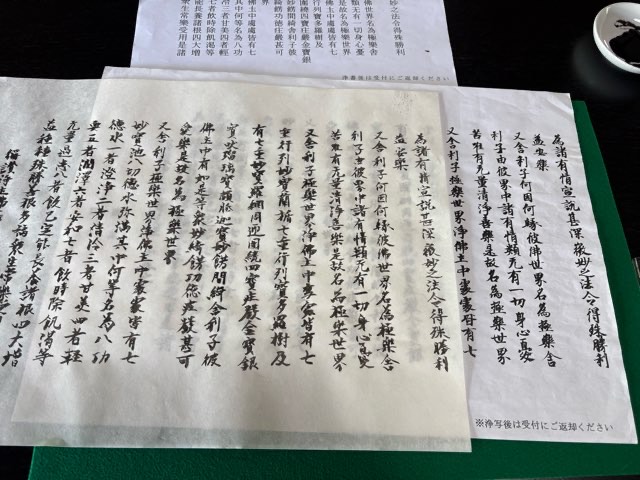 妙之法令得殊勝利
佛世界名為極樂舎
類无有一切身心憂
是故名為極樂世界
佛土中處處皆有七
行列寶多羅樹及
佛土中處處皆有七
其中何等名為八功
冷三者甘美四者輕
七者飲時除飢渴等
能長養諸根四大增
衆生常樂受用是諸
浄書後は受付にご返却ください
為諸有情宣説甚深微妙之法令得殊勝利
益安樂
又舎利子何因何緣彼佛世界名為極樂舎
利子由彼界中諸有情類无有一切身心憂
苦唯有无量清淨喜樂是故名為極樂世界
又舎利子極樂世界淨佛土中處處皆有七
※浄写後は受付にご返却ください
為諸有情宣説甚深微妙之法令得殊勝利
益安樂
又舎利子何因何緣彼佛世界名為極樂舎
利子由彼界中諸有情類无有一切身心憂
苦唯有无量清淨喜樂是故名為極樂世界
又舎利子極樂世界淨佛土中處處皆有七
重行列妙寶欄楯七重行列寶多羅樹及
有七重妙寶羅網周迊圍繞四寶莊嚴金寶銀
寶吠瑠璃寶頗胝迦寶妙飾間綺舎利子彼
佛土中有如是等衆妙綺飾功德莊嚴甚可
愛樂是故名為極樂世界
又舎利子極樂世界淨佛土中處處皆有七
妙寶池八功德水弥滿其中何等名為八功
德水一者澄淨二者清冷三者甘美四者輕
耎五者潤澤六者安和七者飲時除飢渴等
无量過患八者飲已定能長養諸根四大增
益種種殊勝善根多福衆生常樂受